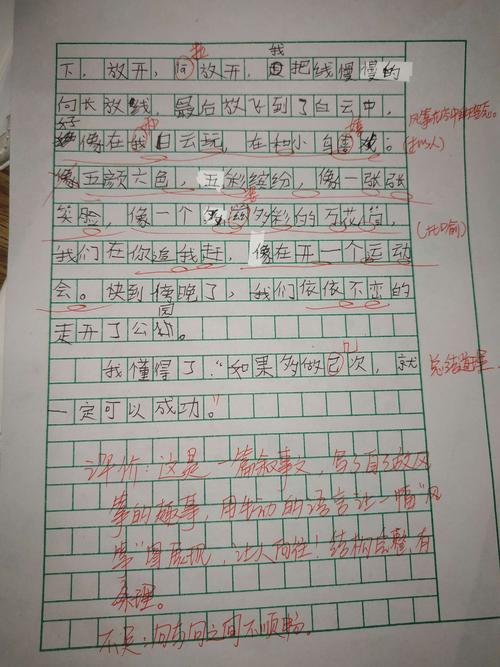 我
下，放开，向放开，把线慢慢的
向长放线，最后放飞到了白云中，
好像在和白云玩，在和小鸟
像五颜六色，五彩缤纷，像一张张
笑脸，像一个多彩的万花筒，
(比喻)
我们在你追我赶，像在开一个运动
会。快到傍晚了，我们依依不恋的
走开了公园。
我懂得了："如果多做己次，就
几
总结道理
一定可以成功。"
评价：这是一篇叙事文，写了自己放风
筝的趣事，用生动的语言让一幅"风
筝"图展现，让人向往！结构完整，有
条理。
不足：句与句之间不顺畅。